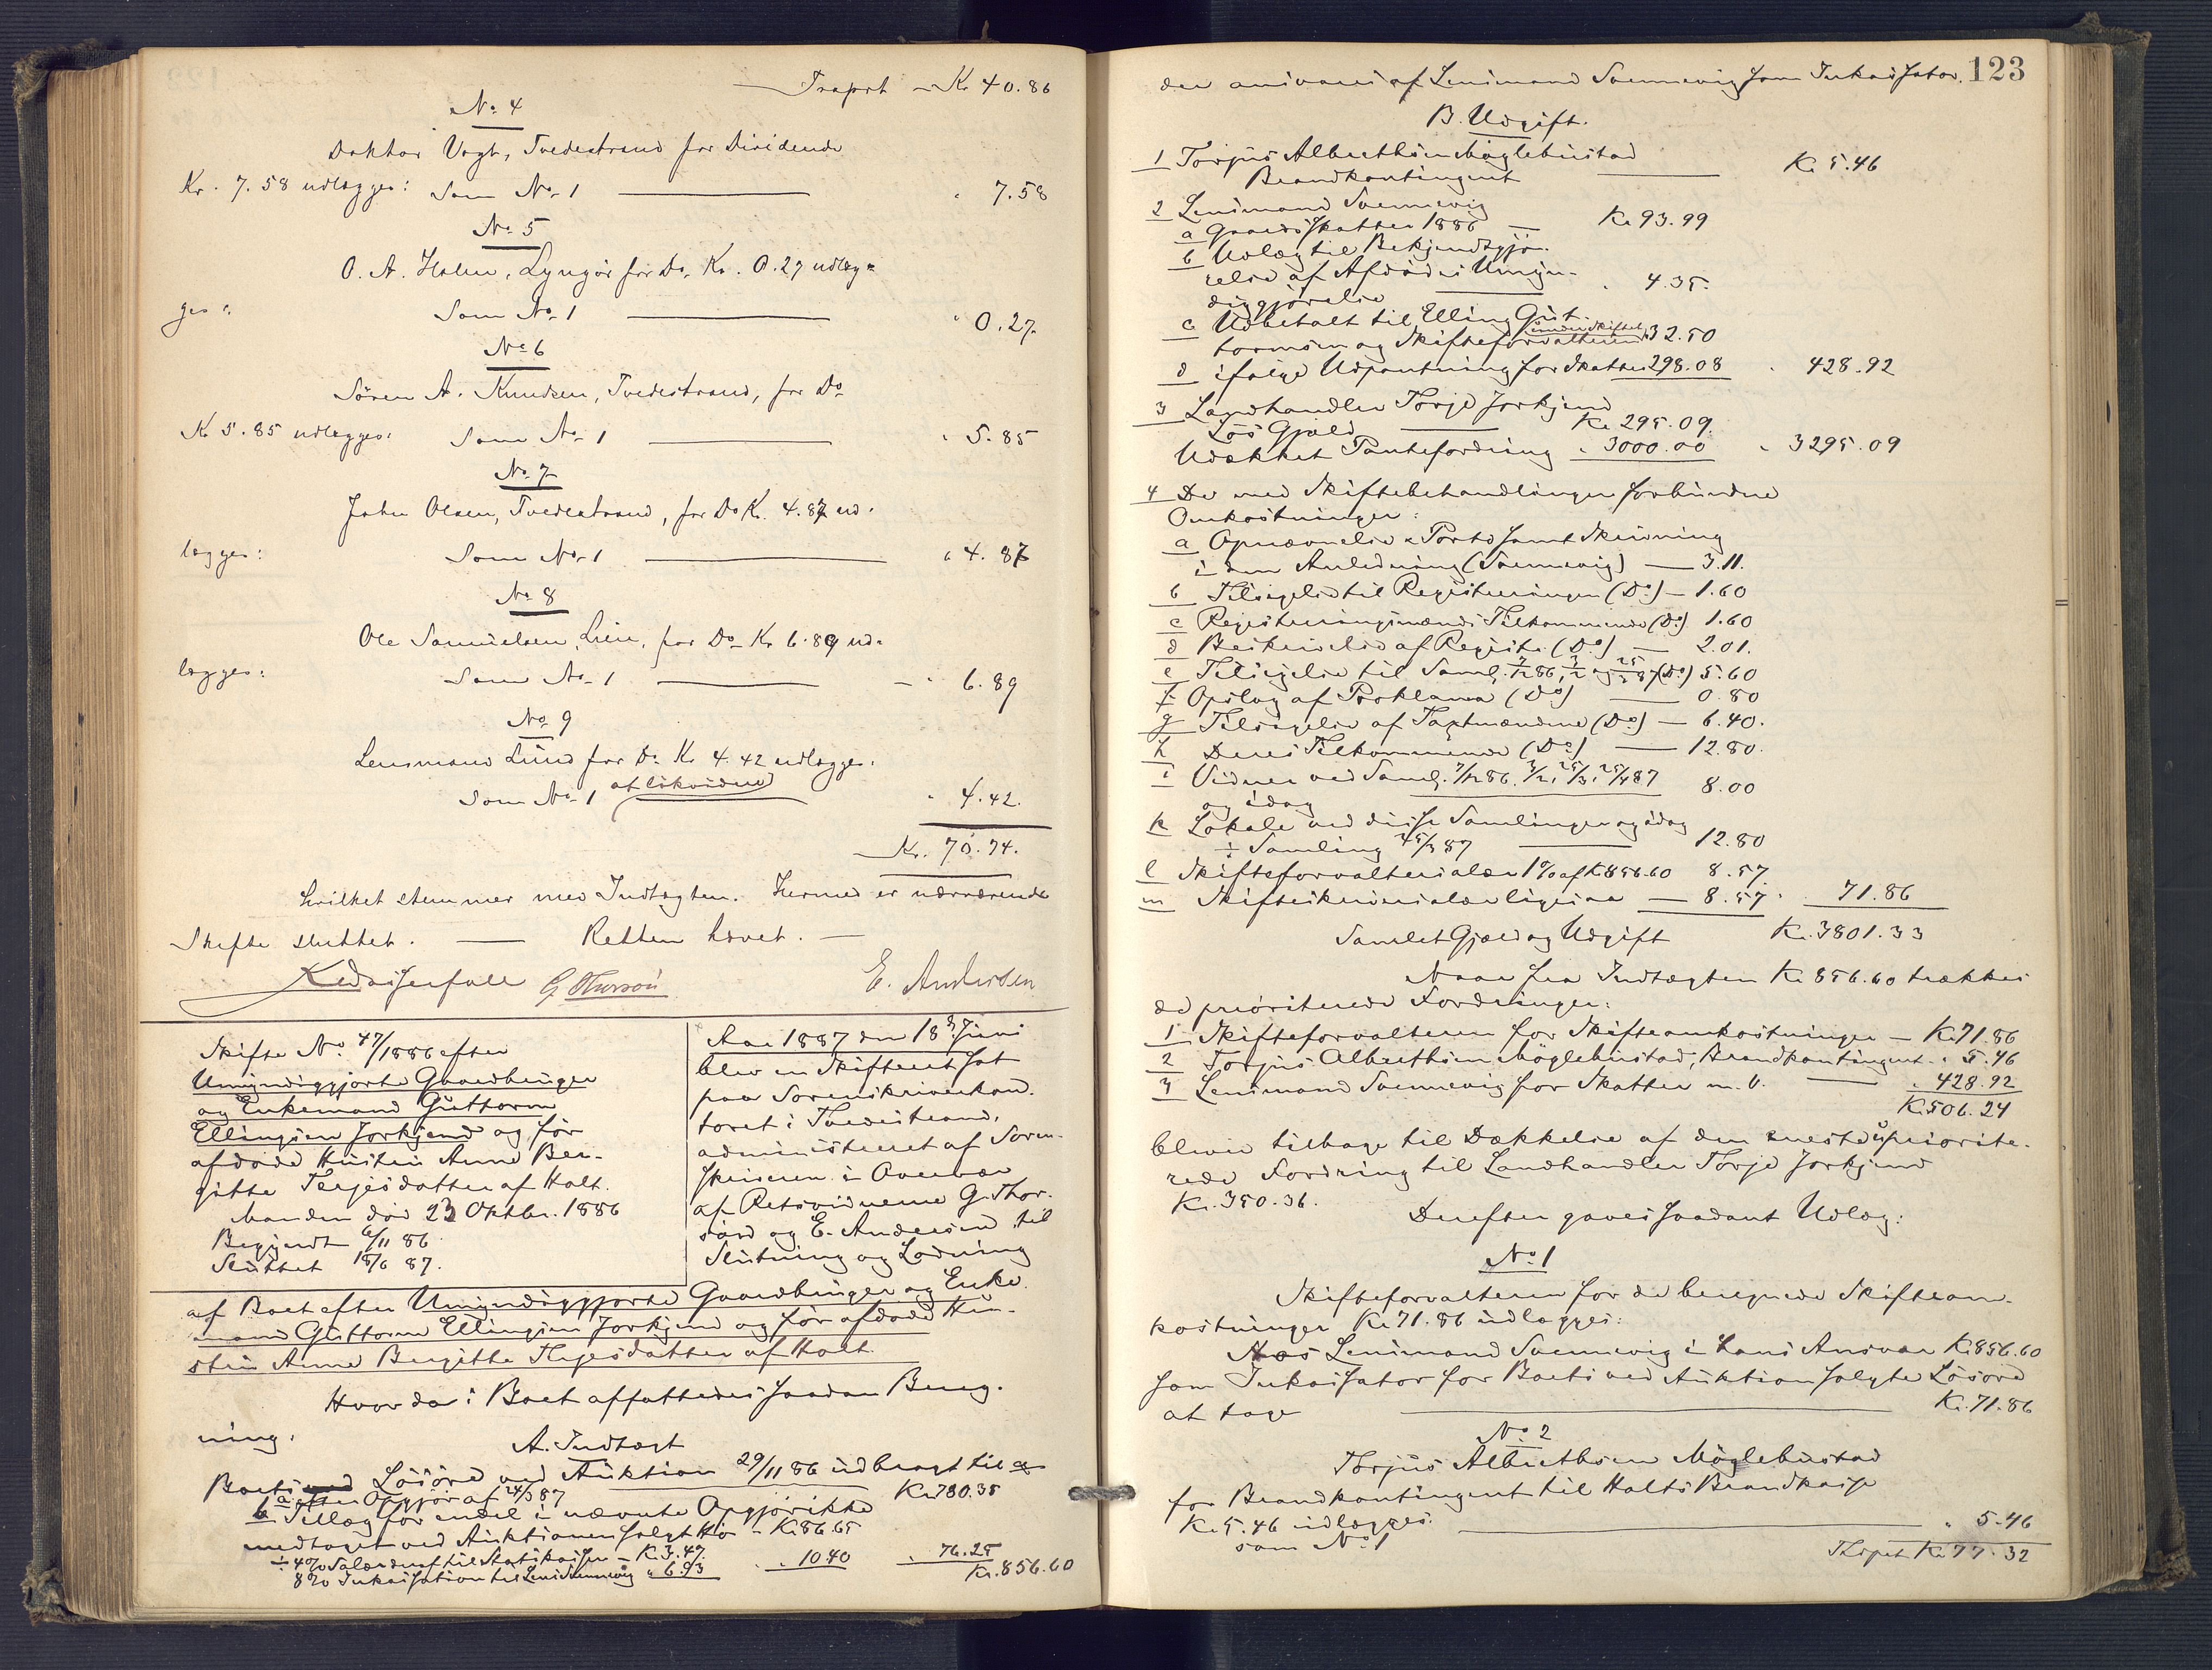 Trsprt Kr 40.86
No 4
Doktor Vogt, Tvedestrand for Dividende
Kr. 7.58 udlægges: Som No 1 " 7.58
No 5
O. A. Holm, Lyngør for Do Kr. 0.27 udlæg-
ges: Som No 1 " 0.27
No 6
Søren A. Knudsen, Tvedestrand, for Do
Kr 5.85 udlægges: Som No 1 " 5.85
No 7
John Olsen, Tvedestrand, for Do Kr. 4.87 ud-
lægges: Som No 1 " 4.87
No 8
Ole Samuelsen, Lien, for Do Kr 6.89 ud-
lægges: Som No 1 " 6.89
No 9
Lensmand Lund for Do Kr 4.42 udlægges:
Som No 1 " 4.42.
Kr. 70.74.
hvilket stemmer med Indtægten. Hermed er nærværende
Skifte sluttet. Retten hævet.
G Thorson E. Andersen
Skifte No 47/1886 efter
Umyndiggjorte Gaardbruger
og Enkemand Guttorm
Ellingsen Jorkjend og før
afdøde Hustru Anne Ber-
gitte Terjesdatter af Holt.
Manden død 23 Oktbr. 1886
Begyndt 6/11 86.
Sluttet 18/6 87.
Aar 1887 den 18de Juni
blev en Skifteret sat
paa Sorenskriverkon-
toret i Tvedestrand,
administreret af Soren-
skriveren i Overvær
af Retsvidnerne G. Thor-
sen og E. Andersen til
Slutning og Lodning
af Boet efter Umyndiggjorte Gaardbruger og Enke-
mand Guttorm Ellingsen Jorkjend og før afdøde Hu-
stru Anne Bergitte Terjesdatter af Holt.
Hvorda i Boet affattedes saadan Bereg-
ning.
A. Indtægt
Boets Løsøre ved Auktion 29/11 86 udbragt til
a efter Opgjør af 24/3 87 Kr 780.35
b Tillæg for endel i nævnte Opgjør ikke
medtaget ved Auktionen solgt Hø - Kr 86.65
÷ 4% Salær til Statskassen - Kr. 3.47.
8% Inkassation til Lensm. Svennevig " 6.93 " 10.40 " 76.25
Kr. 856.60
123
der ansvares af Lensmand Svennevig som Inkassator.
B. Udgift.
1 Torjus Alberthsen Møglebustad
Brandkontingent Kr 5.46
2 Lensmand Svennevig
a Gaardsskatter 1886 Kr 93.99
b Udlæg til Bekjendtgjø-
relse af Afdødes Umyn-
diggjørelse " 4.35.
c Udbetalt til Elling Gut-
tormsen og Skifteforvalteren 32.50
d ifølge Udpantning for Skatter 298.08 " 428.92
3 Landhandler Terje Jorkjend
Løs Gjæld Kr 295.09.
Udækket Pantefordring " 3000.00 " 3295.09
4 De med Skiftebehandlingen forbundne
Omkostninger:
a Opnævnelse, Porto samt Skrivning
i den Anledning (Svennevig) 3.11.
b Tilsigelse til Registreringen (Do) 1.60
c Registreringsmænds Tilkommende (Do) 1.60
d Beskrivelse af Registr. (Do) 2.01.
e Tilsigelse til Saml. 7/12 86, (Do) 5.60
f Opslag af Proklama (Do) 0.80
g Tilsigelse af Taxtmændene (Do) 6.40.
h Deres Tilkommende (Do) 12.80.
i Vidner ved Saml. 7/12 86. 87
og idag 8.00
k Lokale ved disse Samlinger og idag
÷ Samling 25/3 87 12.80
l Skifteforvaltersalær 1% af Kr 856.60 8.57
m Skifteskriversalær ligesaa 8.57 " 71.86
Samlet Gjæld og Udgift Kr. 3801.33
Naar fra Indtægten Kr 856.60 trækkes
de prioriterede Fordringer:
1 Skifteforvalteren for Skifteomkostninger Kr 71.86
2 Torjus Alberthsen Møglebustad, Brandkontingent " 5.46
3 Lensmand Svennevig for Skatter m.v. " 428.92
Kr. 506.24
bliver tilbage til Dækkelse af den eneste upriorite-
rede Fordring til Landhandler Terje Jorkjend
Kr. 350.36.
Derefter gaves saadant Udlæg:
No 1
Skifteforvalteren for de beregnede Skifteom-
kostninger Kr 71.86 udlægges:
Hos Lensmand Svennevig i hans Ansvar Kr 856.60
som Inkassator for Boets ved Auktion solgte Løsøre
at tage Kr. 71.86
No 2
Torjus Alberthsen Møglebustad
for Brandkontingent til Holts Brandkasse
Kr. 5.46 udlægges:
som No 1 " 5.46
Trspt Kr 77.32